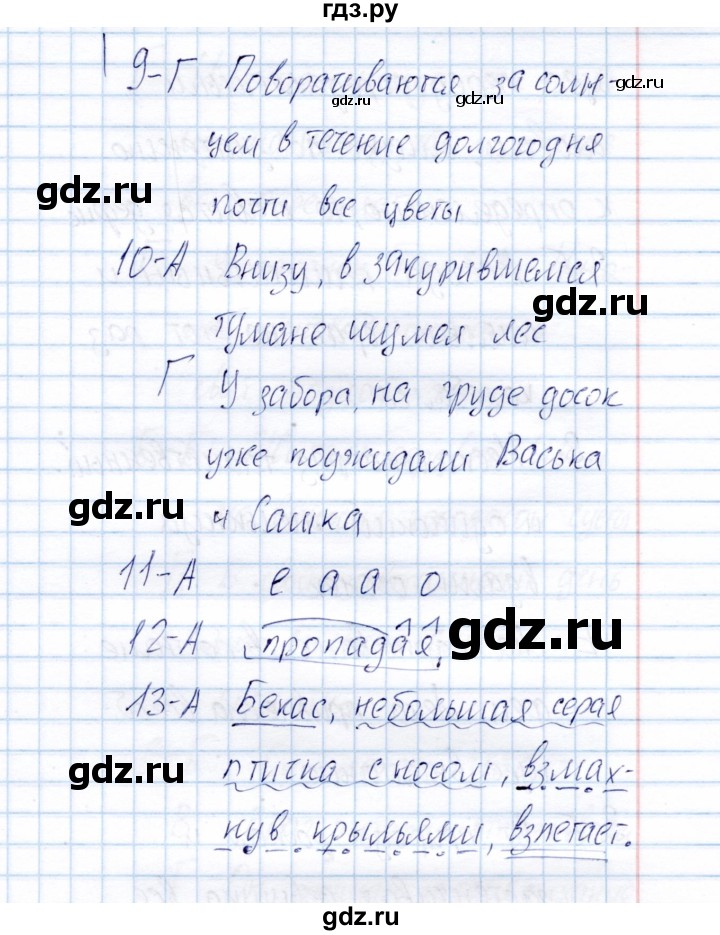 гдз.ру
9-Г Поворачиваются за солн-
gdz.ru gdz.ru gdz.ru
цем в течение долгогодня
gdz.ru
почти все цветы
10-А Внизу, в закурившемся
gdz.ru
тумане шумел лес
Г У забора, на груде досок
уже поджидали Васька
gdz.ru
и Сашка
11-А е а а о
12-А пропадая,
gdz.ru
13-А Бекас, небольшая серая
gdz.ru
птичка с носом, взмах-
нув крыльями, взлетает.
gdz.ru